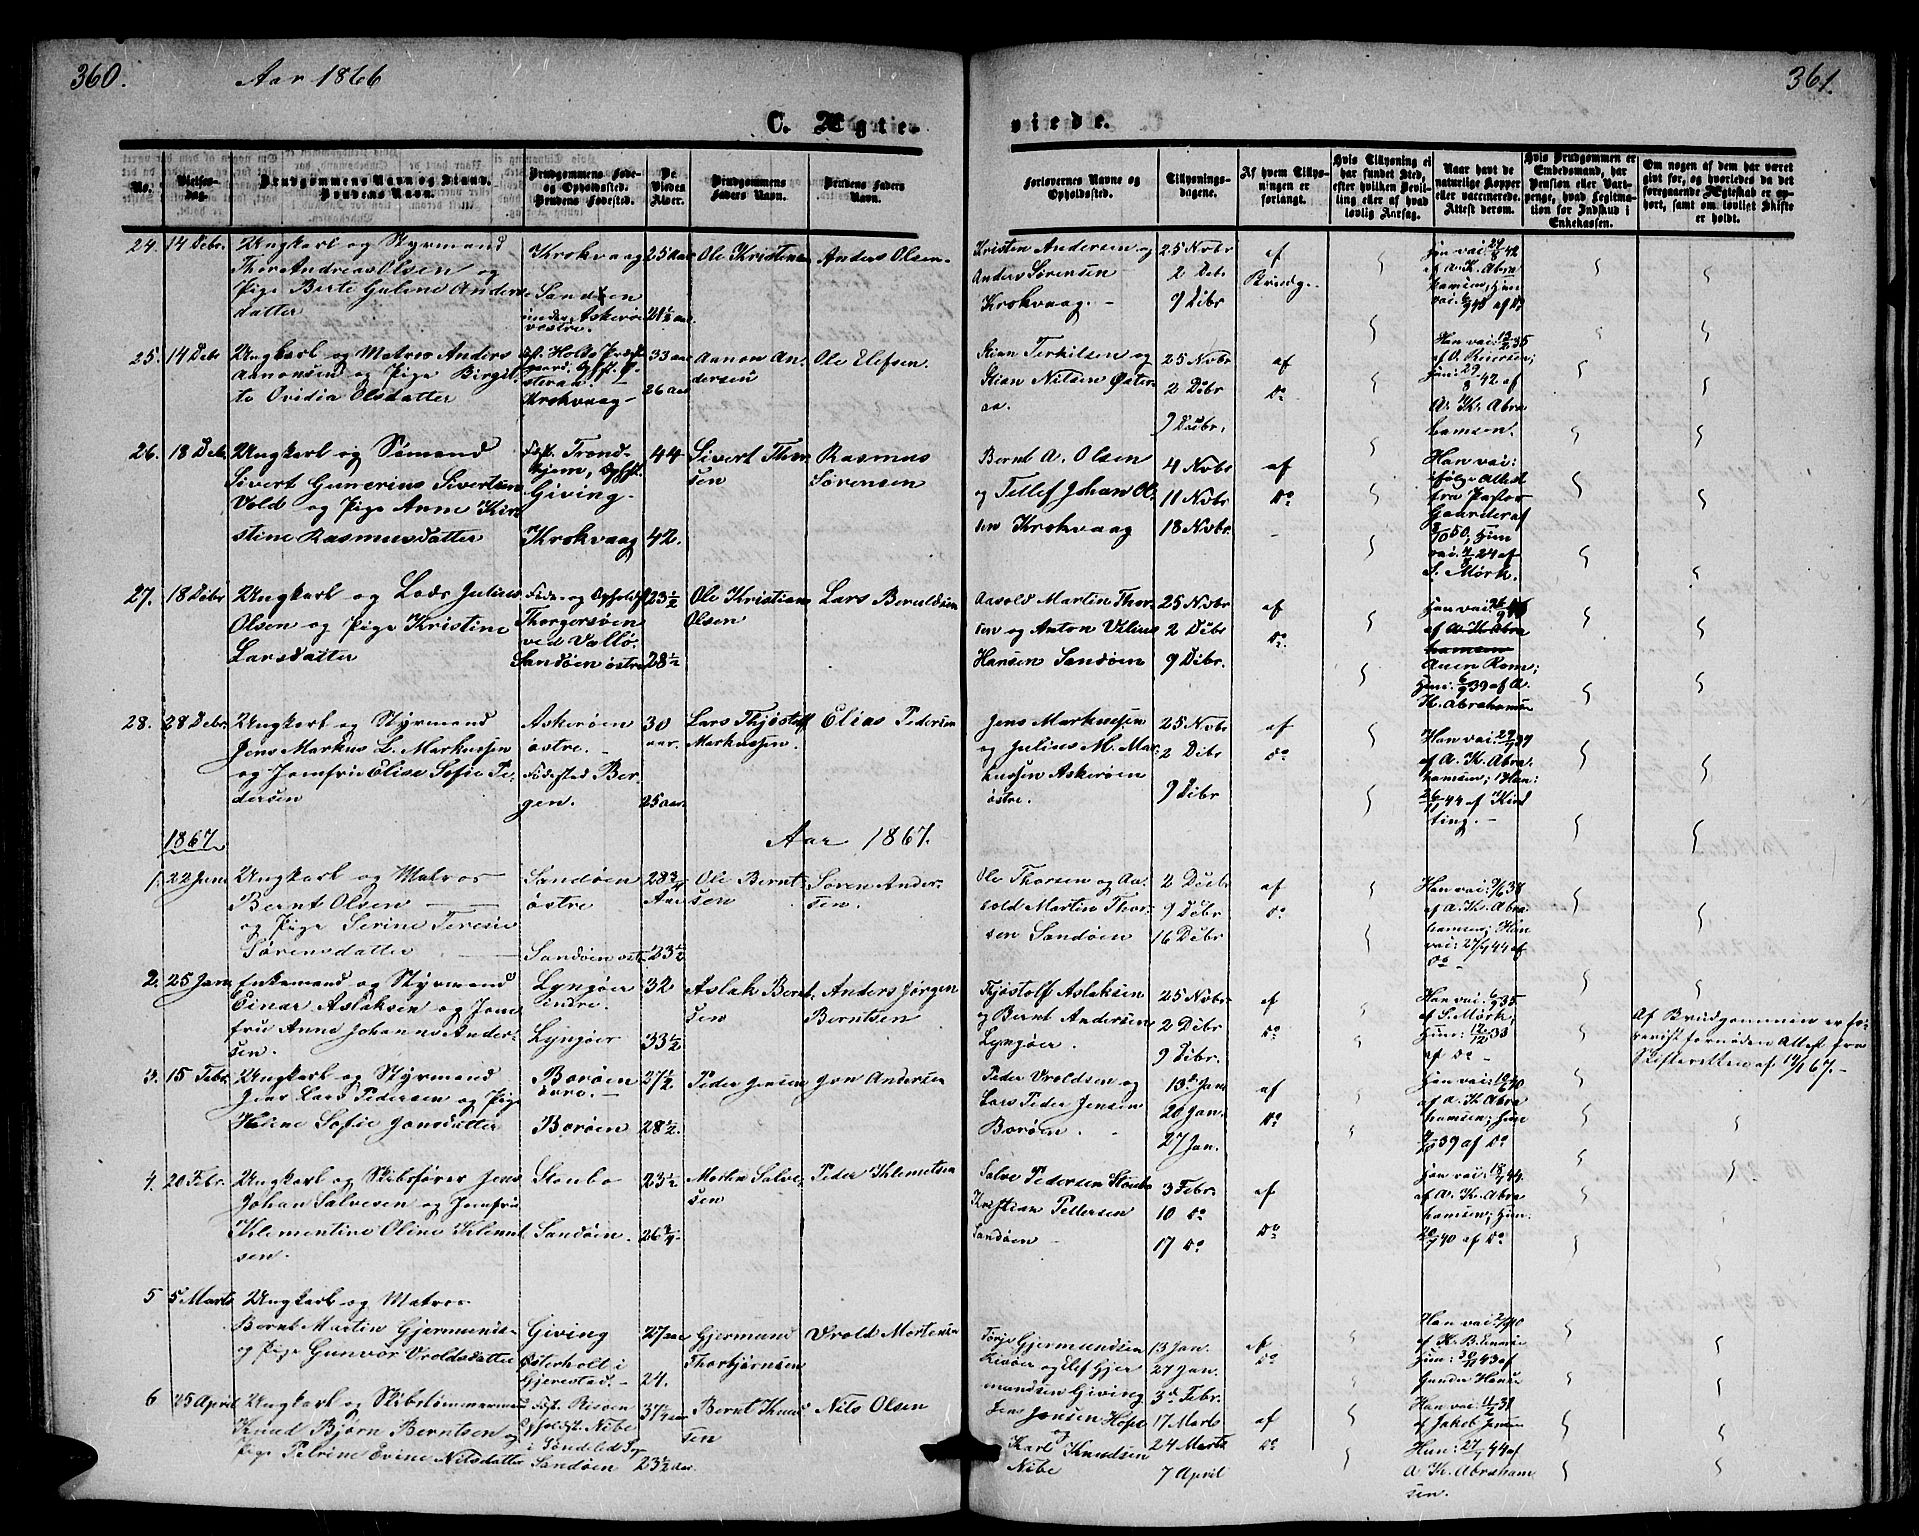 360.
Aar 1866
361.
C. Ægte-
viede.
No.
Vielses-
dag.
Brudgommens Navn og Stand.
Brudens Navn.
Brudgommens Føde-
og Opholdssted.
Brudens Fødested.
De
Viedes
Alder.
Brudgommens
Faders Navn.
Brudens Faders
Navn.
Forlovernes Navne og
Opholdssted.
Tillysnings-
dagene.
Af hvem Tillys-
ningen er
forlangt.
Hvis Tillysning ei
har fundet Sted,
efter hvilken Bevil-
ling eller af hvad
lovlig Aarsag.
Naar havt de
naturlige Kopper
eller vaccinerede.
Attest derom.
Hvis Brudgommen er
Embedsmand, har
Pension eller Vart-
penge, hvad Legitima-
tion for Indskud i
Enkekassen.
Om nogen af dem har været
gift før, og hvorledes da det
foregaaende Ægteskab er op-
hørt, samt om lovligt Skifte
er holdt.
24. 14 Debr. Ungkarl og Styrmand
Thor Andreas Olsen og
Pige Berte Guline Anders
datter
Krokvaag
Sandøen
under Askerø
vestre.
25 Aar
21½ aar
Ole Kristensen
Anders Olsen
Kristen Andersen og
Anders Sørensen
Krokvaag. -
25 Novbr
2 Debr
9 Debr
af
Brudg.
af A. K. Abra
hamsen; Hun
25. 14 Debr Ungkarl og Matros Anders
Aanonsen og Pige Birgit-
te Ovidia Olsdatter
Krokvaag
33 aar
26 aar
Aanon An-
dersen
Ole Elefsen.
Stian Terkilsen og
Stian Nilsen Øster
aa.
25 Novbr
2 Debr
9 Debr.
af
Do
Han vac: 12/2 35
af O. Reiersen;
Hun: 29/8 42 af
A. K. Abra
hamsen.
26. 18 Debr. Ungkarl og Sømand
Sivert Gunerius Sivertsen
Vold og Pige Anne Kir
stine Rasmusdatter
Fødst. Trond-
hjem, Ophst.
Giving
Krokvaag
44
42.
Sivert Thor
sen
Rasmus
Sørensen
Bernt A. Olsen
og Tellef Johan Ol-
sen Krokvaag
4 Novbr
11 Novbr
18 Novbr.
af
Do
Han vac:
ifølge Attest
fra Pastor
Gaarder af
S. Mørk.
27. 18 Debr Ungkarl og Lods Julius
Olsen og Pige Kristine
Larsdatter
Føde- og Opholdst
Thorgersøen
ved Vallø.
Sandøen østre
23½
28½
Ole Kristian
Olsen
Lars Beruldsen
Aasold Martin Thor-
sen og Anton Vilius
Hansen Sandøen
25 Novbr
2 Debr
9 Debr.
af
Do
af A. K. Abra
hamsen
Hun: 6/9 39 af A.
K. Abrahamsen
28. 28 Debr. Ungkarl og Styrmand
Jens Markus L. Markussen
og Jomfru Elise Sofie Pe-
dersen
Askerøen
østre. -
Fødested Ber-
gen.
30
aar.
25 aar.
Lars Thjøstolf
Markussen.
Elias Pedersen
Jens Markussen
og Julius M. Mar-
kussen Askerøen
østre.
25 Novbr
2 Debr
9 Debr
af
Do
Han vac: 29/9 37
af A. K. Abra-
hamsen; Hun:
26/11 44 af Kind
ting. -
1867
Aar 1867.
1. 22 Jan. Ungkarl og Matros
Bernt Olsen
og Pige Serine Teresie
Sørensdatter
Sandøen
østre
Sandøen østre
28¾
Aar
23½
Ole Bernt-
sen
Søren Ander-
sen.
Ole Thorsen og Aa-
sold Martin Thor-
sen Sandøen
2 Debr
9 Debr
16 Debr
af
Do
Han vac: 9/6 38
af A. K. Abra-
hamsen; Hun
vac: 27/9 44 af
Do -
2. 25 Jan. Enkemand og Styrmand
Einar Aslaksen og Jom
fru Anne Johanne Ander-
sen.
Lyngøer
indre
Lyngøer
32
33½
Aslak Bernt
sen
Anders Jørgen
Berntsen
Thjøstolf Aslaksen
og Bernt Andersen
Lyngøer.
25 Novbr
2 Debr
9 Debr.
af
Do
Han vac: 6/9 35
af S. Mørk;
Hun: 12/12 33
af Do -
Af Brudgommen er fo-
revist fornøden Attest fra
Skifteretten af 19/1 67. -
3. 15 Febr. Ungkarl og Styrmand
Jens Lars Pedersen og Pige
Helene Sofie Jonsdatter
Borøen
øvre. -
Borøen
27½
28½.
Peder Jensen
Jon Andersen
Peder Vroldsen og
Lars Peder Jensen
Borøen.
13de Jan
20 Jan.
27 Jan.
af
Do
af A. K. Abra
hamsen; Hun
39 af Do
4. 20 Febr. Ungkarl og Skibsfører Jens
Johan Salvesen og Jomfru
Klementine Oline Klemet
sen.
Stenbo
Sandøen.
23½
26¾
Morten Salve-
sen
Peder Klemetsen
Salve Pedersen Stenbo
Kristian Pettersen
Sandøen
3 Febr.
10 Do
17 Do
af
Do
Han vac: 18/7 44
af A. K. Abra
hamsen; Hun:
40 af Do
5 5 Marts Ungkarl og Matros
Bernt Martin Gjermunds-
og Pige Gunvor Vroldsdatter
Giving
Østerholt i
Gjerestad. -
27 aar
24.
Gjermund
Thorbjørnsen
Vrold Mortensen
Torje Gjermundsen
Risøer og Elef Gjer
mundsen Giving
13 Jan.
27 Jan.
3de Febr.
af
Do
Hun: 30/11 43 af
6 25 April Ungkarl og Skibstømmermand
Knud Bjørn Berntsen og
Pige Petrine Evine Nilsdatter
Fdst. Risøen
Opholdst. Nibe
i Søndeled Sg
Sandøen
37½ aar
23½ aar
Bernt Knud
sen
Nils Olsen
Jens Jensen Hope
og
Karl Knudsen
Nibe
17 Marts
24 Marts
7 April
af
Do
af Jakob Jensen
Hun: 27/7 44 af
A. K. Abraham
sen.